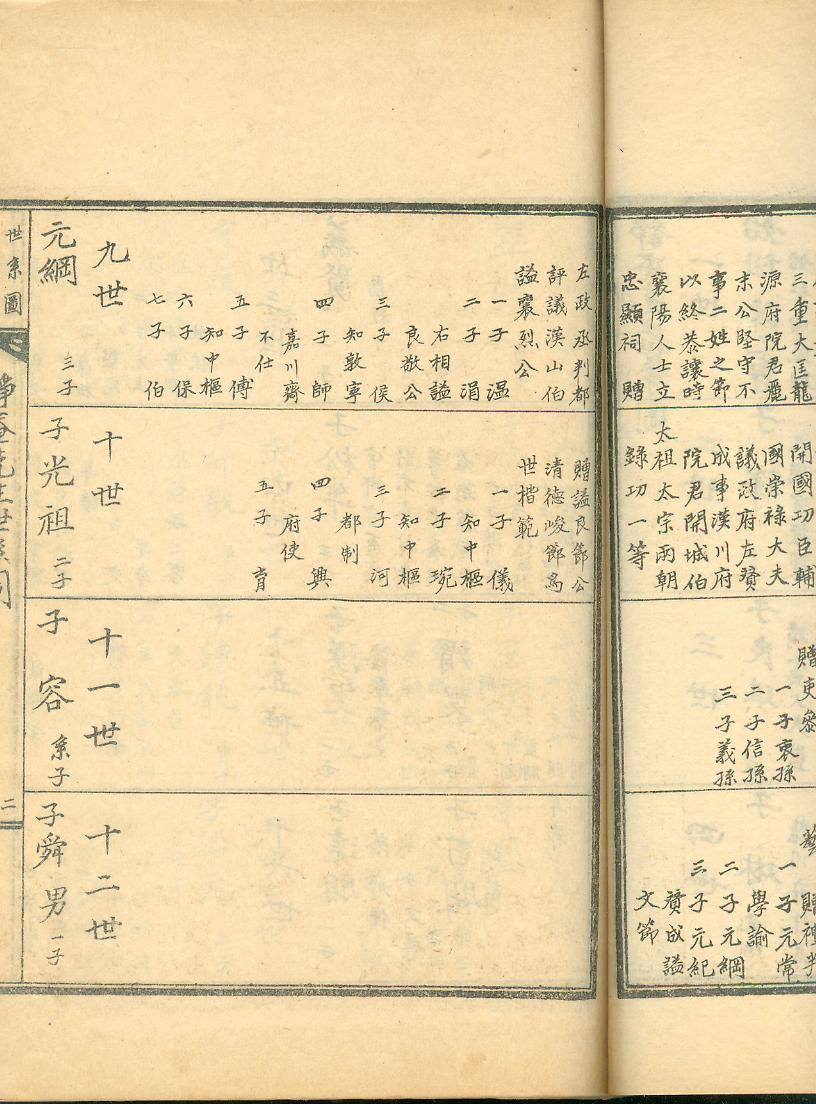 三重大匡龍
源府院君麗
末公堅守不
事二姓之節
以終恭讓時
襄陽人士立
忠顯祠 贈
開國功臣輔
國崇祿大夫
議政府左贊
成事漢川府
院君開城伯
太祖太宗兩朝
錄功一等
贈吏參
一子衷孫
二子信孫
三子義孫
贈禮判
一子元常
學諭
二子元綱
三子元紀
贊成謚
文節
左政丞判都
評議漢山伯
謚襄烈公
一子 温
二子 涓
右相謚
良敬公
三子 侯
知敦寧
四子 師
嘉川齋
不仕
五子 傅
知中樞
六子 保
七子 伯
九世
元綱 三子
贈謚良節公
清德峻節爲
世楷範
一子 儀
知中樞
二子 琬
知中樞
三子 河
都制
四子 興
府使
五子 育
十世
子光祖 二子
十一世
子 容 系子
十二世
子舜男 一子
世系圖
二